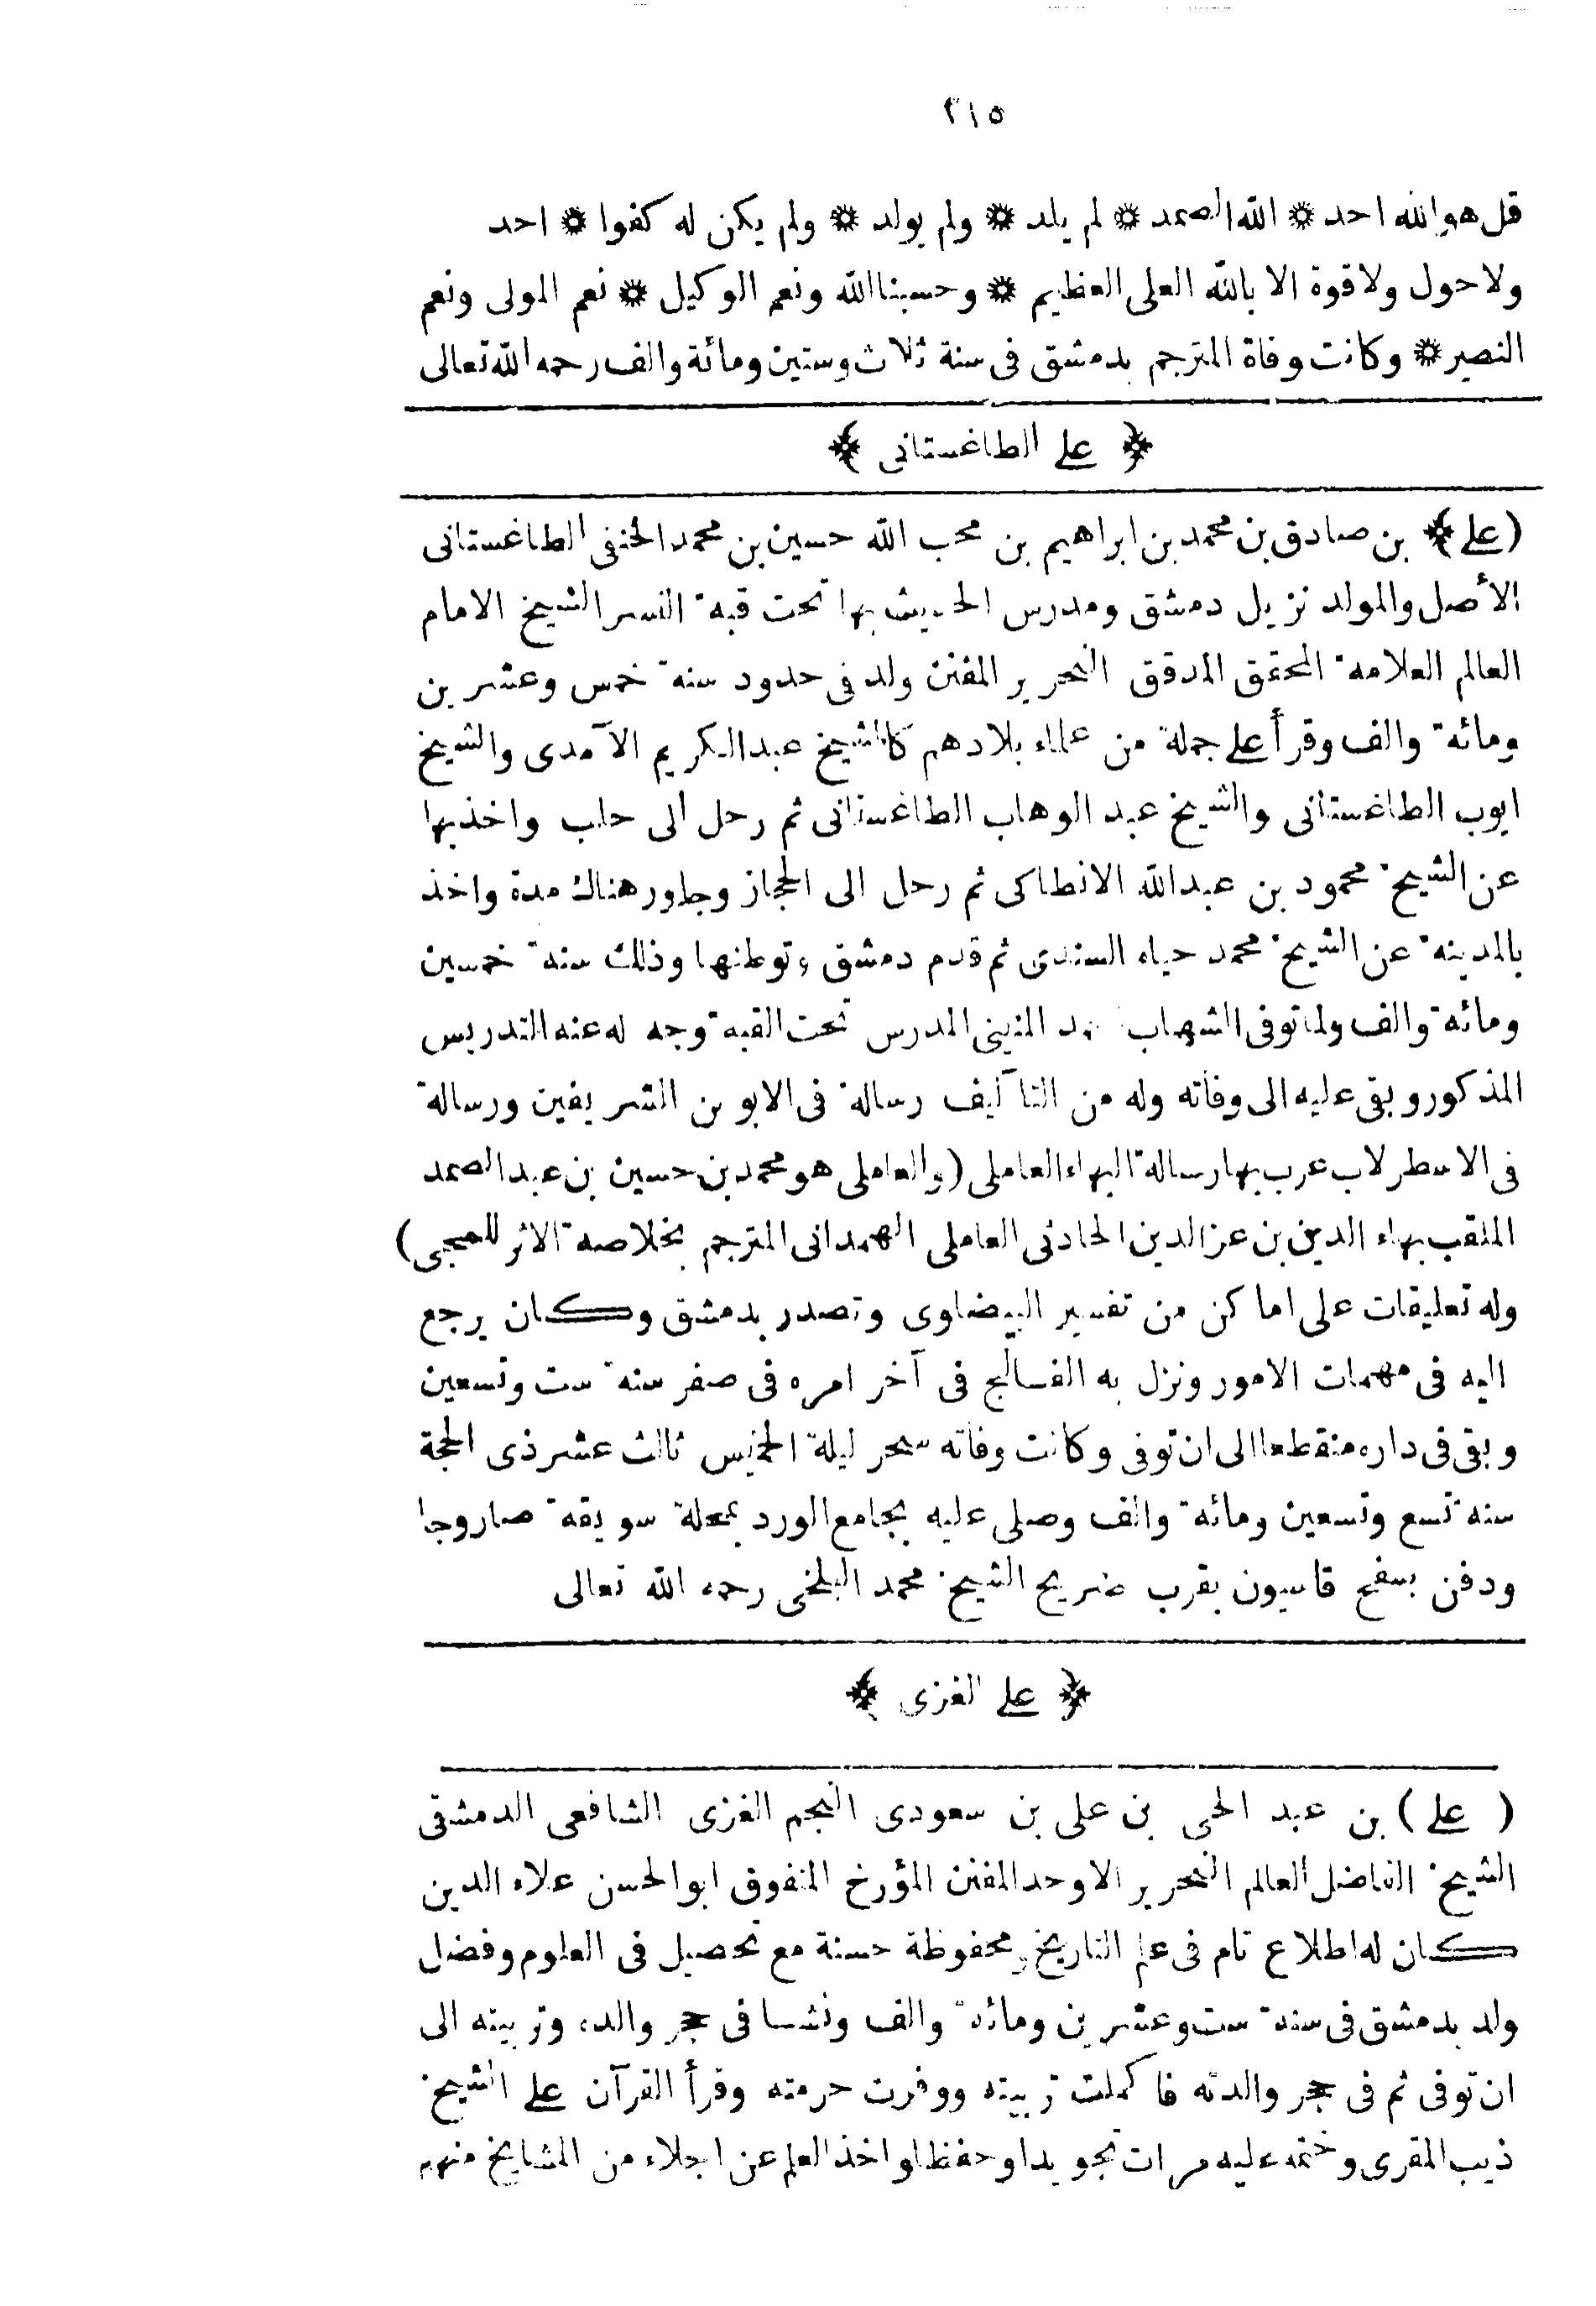 ٢١٥
قل هو الله احد * الله الصمد * لم يلد * ولم يولد * ولم يكن له كفوا * احد
ولا حول ولا قوة الا بالله العلى العظيم * وحسبنا الله ونعم الوكيل * نعم المولى ونعم
النصير * وكانت وفاة المترجم بدمشق فى سنة ثلاث وستين ومائة والف رحمه الله تعالى
﴿ على الطاغستانى ﴾
(على﴾ بن صادق بن محمد بن ابراهيم بن محب الله حسين بن محمد الحنفى الطاغستانى
الأصل والمولد نزيل دمشق ومدرس الحديث بها تحت قبة النسر الشيخ الامام
العالم العلامة المحقق المدقق النحرير المفنن ولد فى حدود سنة خمس وعشرين
ومائة والف وقرأ على جملة من علماء بلادهم كالشيخ عبد الكريم الآمدى والشيخ
ايوب الطاغستانى والشيخ عبد الوهاب الطاغستانى ثم رحل الى حلب واخذ بها
عن الشيخ محمود بن عبد الله الانطاكى ثم رحل الى الحجاز وجاور هناك مدة واخذ
بالمدينة عن الشيخ محمد حياه السندى ثم قدم دمشق وتوطنها وذلك سنة خمسين
ومائة والف ولما توفى الشهاب المنينى المدرس تحت القبة وجه له عنه التدريس
المذكور وبقى عليه الى وفاته وله من التآليف رسالة فى الابوين الشريفين ورسالة
فى الاسطرلاب عرب بها رسالة البهاء العاملى (والعاملى هو محمد بن حسين بن عبد الصمد
الملقب بهاء الدين بن عز الدين الحادثى العاملى الهمدانى المترجم بخلاصة الاثر للمحبى)
وله تعليقات على اماكن من تفسير البيضاوى وتصدر بدمشق وكان يرجع
اليه فى مهمات الامور ونزل به الفسالج فى آخر امره فى صفر سنة ست وتسعين
وبقى فى داره منقطعا الى ان توفى وكانت وفاته سحر ليلة الخميس ثالث عشر ذى الحجة
سنة تسع وتسعين ومائة والف وصلى عليه بجامع الورد بمحلة سويقة صاروجا
ودفن بسفح قاسيون بقرب ضريح الشيخ محمد البلخى رحمه الله تعالى
﴿ على الغزى ﴾
( على ) بن عبد الحى بن على بن سعودى النجم الغزى الشافعى الدمشقى
الشيخ الفاضل العالم النحرير الاوحد المفنن المؤرخ المتفوق ابو الحسن علاء الدين
كان له اطلاع تام فى علم التاريخ ومحفوظة حسنة مع تحصيل فى العلوم وفضل
ولد بدمشق فى سنة ست وعشرين ومائة والف ونشا فى حجر والده وتربيته الى
ان توفى ثم فى حجر والدته فاكملت تربيته ووفرت حرمته وقرأ القرآن على الشيخ
ذيب المقرى وختمه عليه مرات تجويدا وحفظا واخذ العلم عن اجلاء من المشايخ منهم